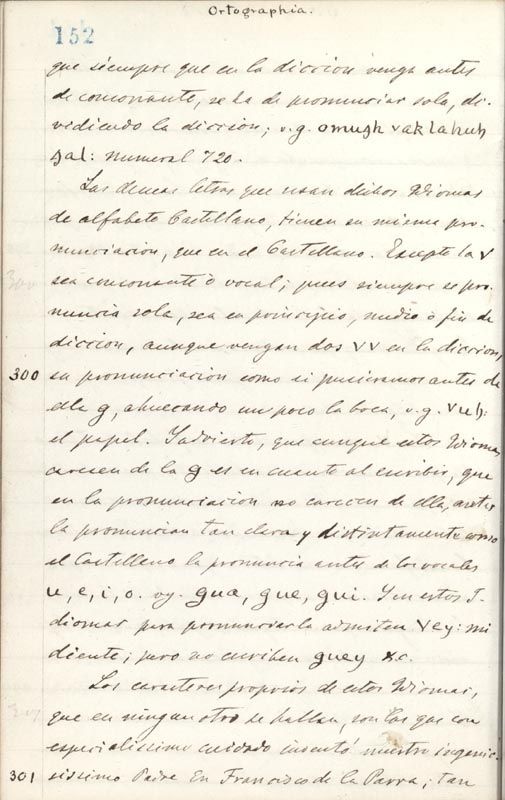 Ortographia.
152
que siempre que en la diccion venga antes
de consonante, se ha de pronunciar sola, di-
vidiendo la diccion; v.g. omugh vaklahuh
gal: numeral 720.
Las demas letras que usan dichos Idiomas
de alfabeto Castellano, tienen su misma pro-
nunciacion, que en el Castellano. Excepto la V
sea consonante ò vocal; pues siempre se pro-
nuncia sola, sea en principio, medio ò fin de
diccion, aunque vengan dos VV en la diccion,
300 su pronunciacion como si pusieramos antes de
ella g, ahuecando un poco la boca, v.g. Vuh:
el papel. Y advierto, que aunque estos Idiomas
carecen de la g es en cuanto al escribir, que
en la pronunciacion no carecen de ella, antes
la pronuncian tan clara y distintamente como
el Castellano la pronuncia antes de los vocales
u, e, i, o. vg. gua, gue, gui. Y en estos I-
diomas para pronunciarla admiten Vey: mi
diente; pero no escriben guey &c.
Los caracteres proprios de estos Idiomas,
que en ningun otro se hallan, son los que con
especialissimo cuidado inventó nuestro ingenio-
301 sissimo Padre Fr. Francisco de la Parra; tan